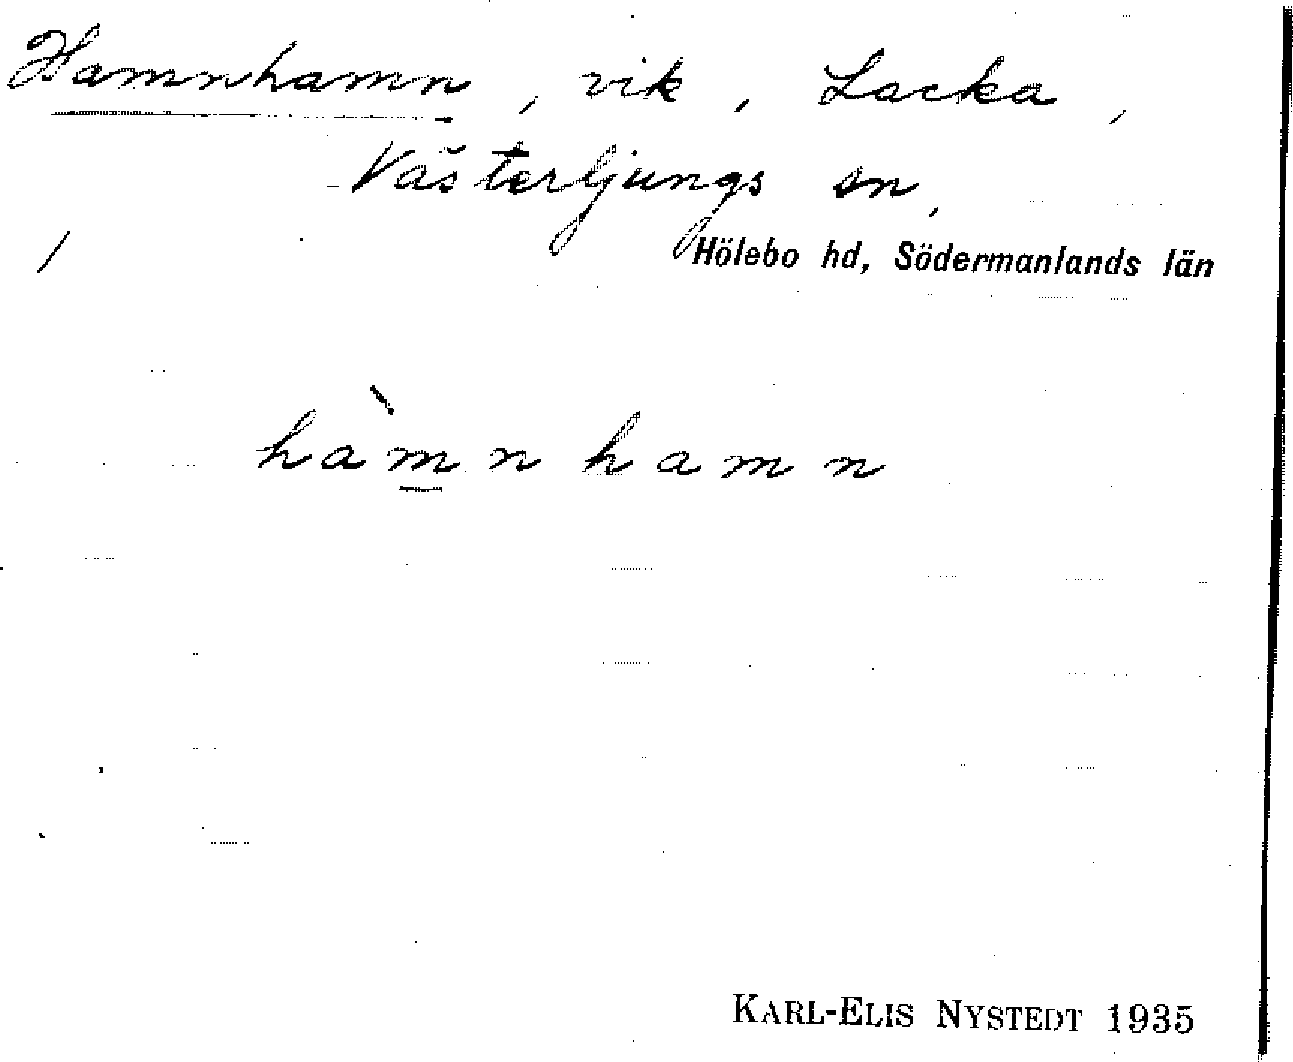 Hamnhamn, vik, Lacka,
Västerljungs sn,
Hölebo hd, Södermanlands län
hàmnhamn
KARL-ELIS NYSTEDT 1935